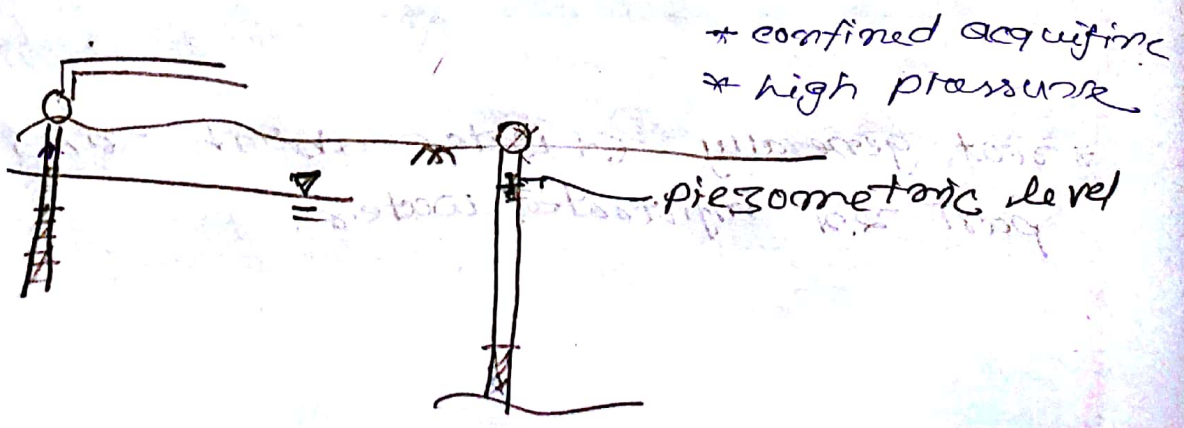 * confined acquifire
* high pressure
piezometric level